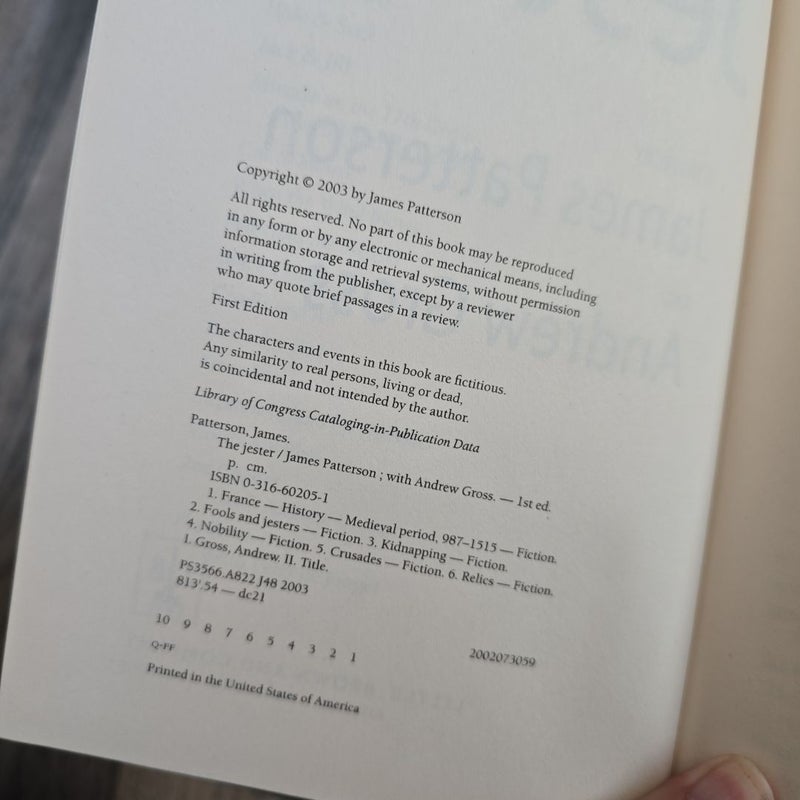 Copyright © 2003 by James Patterson
All rights reserved. No part of this book may be reproduced
in any form or by any electronic or mechanical means, including
information storage and retrieval systems, without permission
in writing from the publisher, except by a reviewer
who may quote brief passages in a review.
First Edition
The characters and events in this book are fictitious.
Any similarity to real persons, living or dead,
is coincidental and not intended by the author.
Library of Congress Cataloging-in-Publication Data
Patterson, James.
The jester / James Patterson ; with Andrew Gross. — 1st ed.
p. cm.
ISBN 0-316-60205-1
1. France — History — Medieval period, 987–1515 — Fiction.
2. Fools and jesters — Fiction. 3. Kidnapping — Fiction.
4. Nobility — Fiction. 5. Crusades — Fiction. 6. Relics — Fiction.
I. Gross, Andrew. II. Title.
PS3566.A822 J48 2003
813'.54 — dc21
2002073059
10 9 8 7 6 5 4 3 2 1
Q-FF
Printed in the United States of America